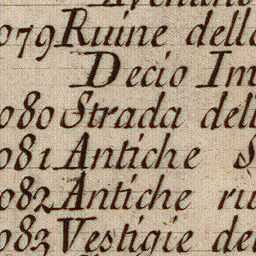 079 Ruine dell
Decio Im
080 Strada dell
081 Antiche S
082 Antiche ru
083 Vestigie de